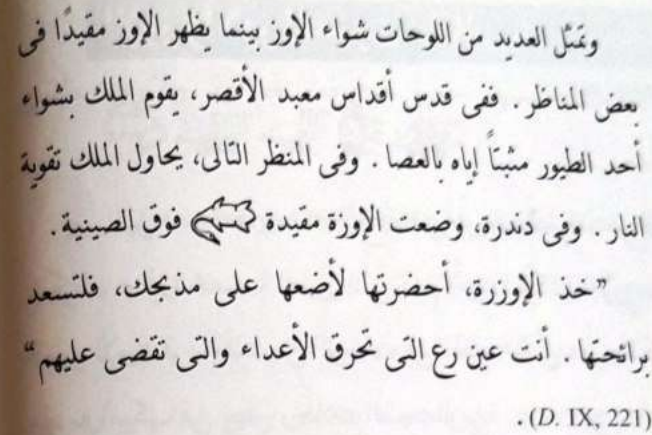 وتمثل العديد من اللوحات شواء الإوز بينما يظهر الإوز مقيدًا فى
بعض المناظر. ففى قدس أقداس معبد الأقصر، يقوم الملك بشواء
أحد الطيور مثبتاً إياه بالعصا. وفى المنظر التالى، يحاول الملك تقوية
النار. وفى دندرة، وضعت الإوزة مقيدة فوق الصينية.
”خذ الإوزرة، أحضرتها لأضعها على مذبحك، فلتسعد
برائحتها. أنت عين رع التى تحرق الأعداء والتى تقضى عليهم“
(D. IX, 221).